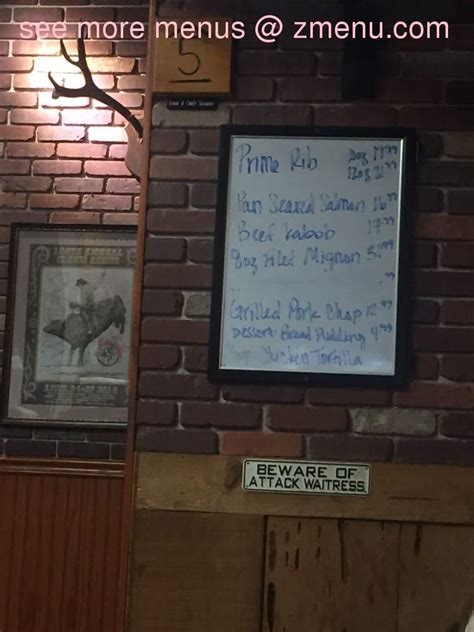 see more menus @ zmenu.com
5
Prime Rib 8oz 17.99
12oz 21.99
Pan Seared Salmon 16.99
Beef Kabob 17.99
8oz Filed Mignon
Grilled Pork Chop
Dessert: Bread Pudding 4.99
Chicken Tortilla
BEWARE OF
ATTACK WAITRESS